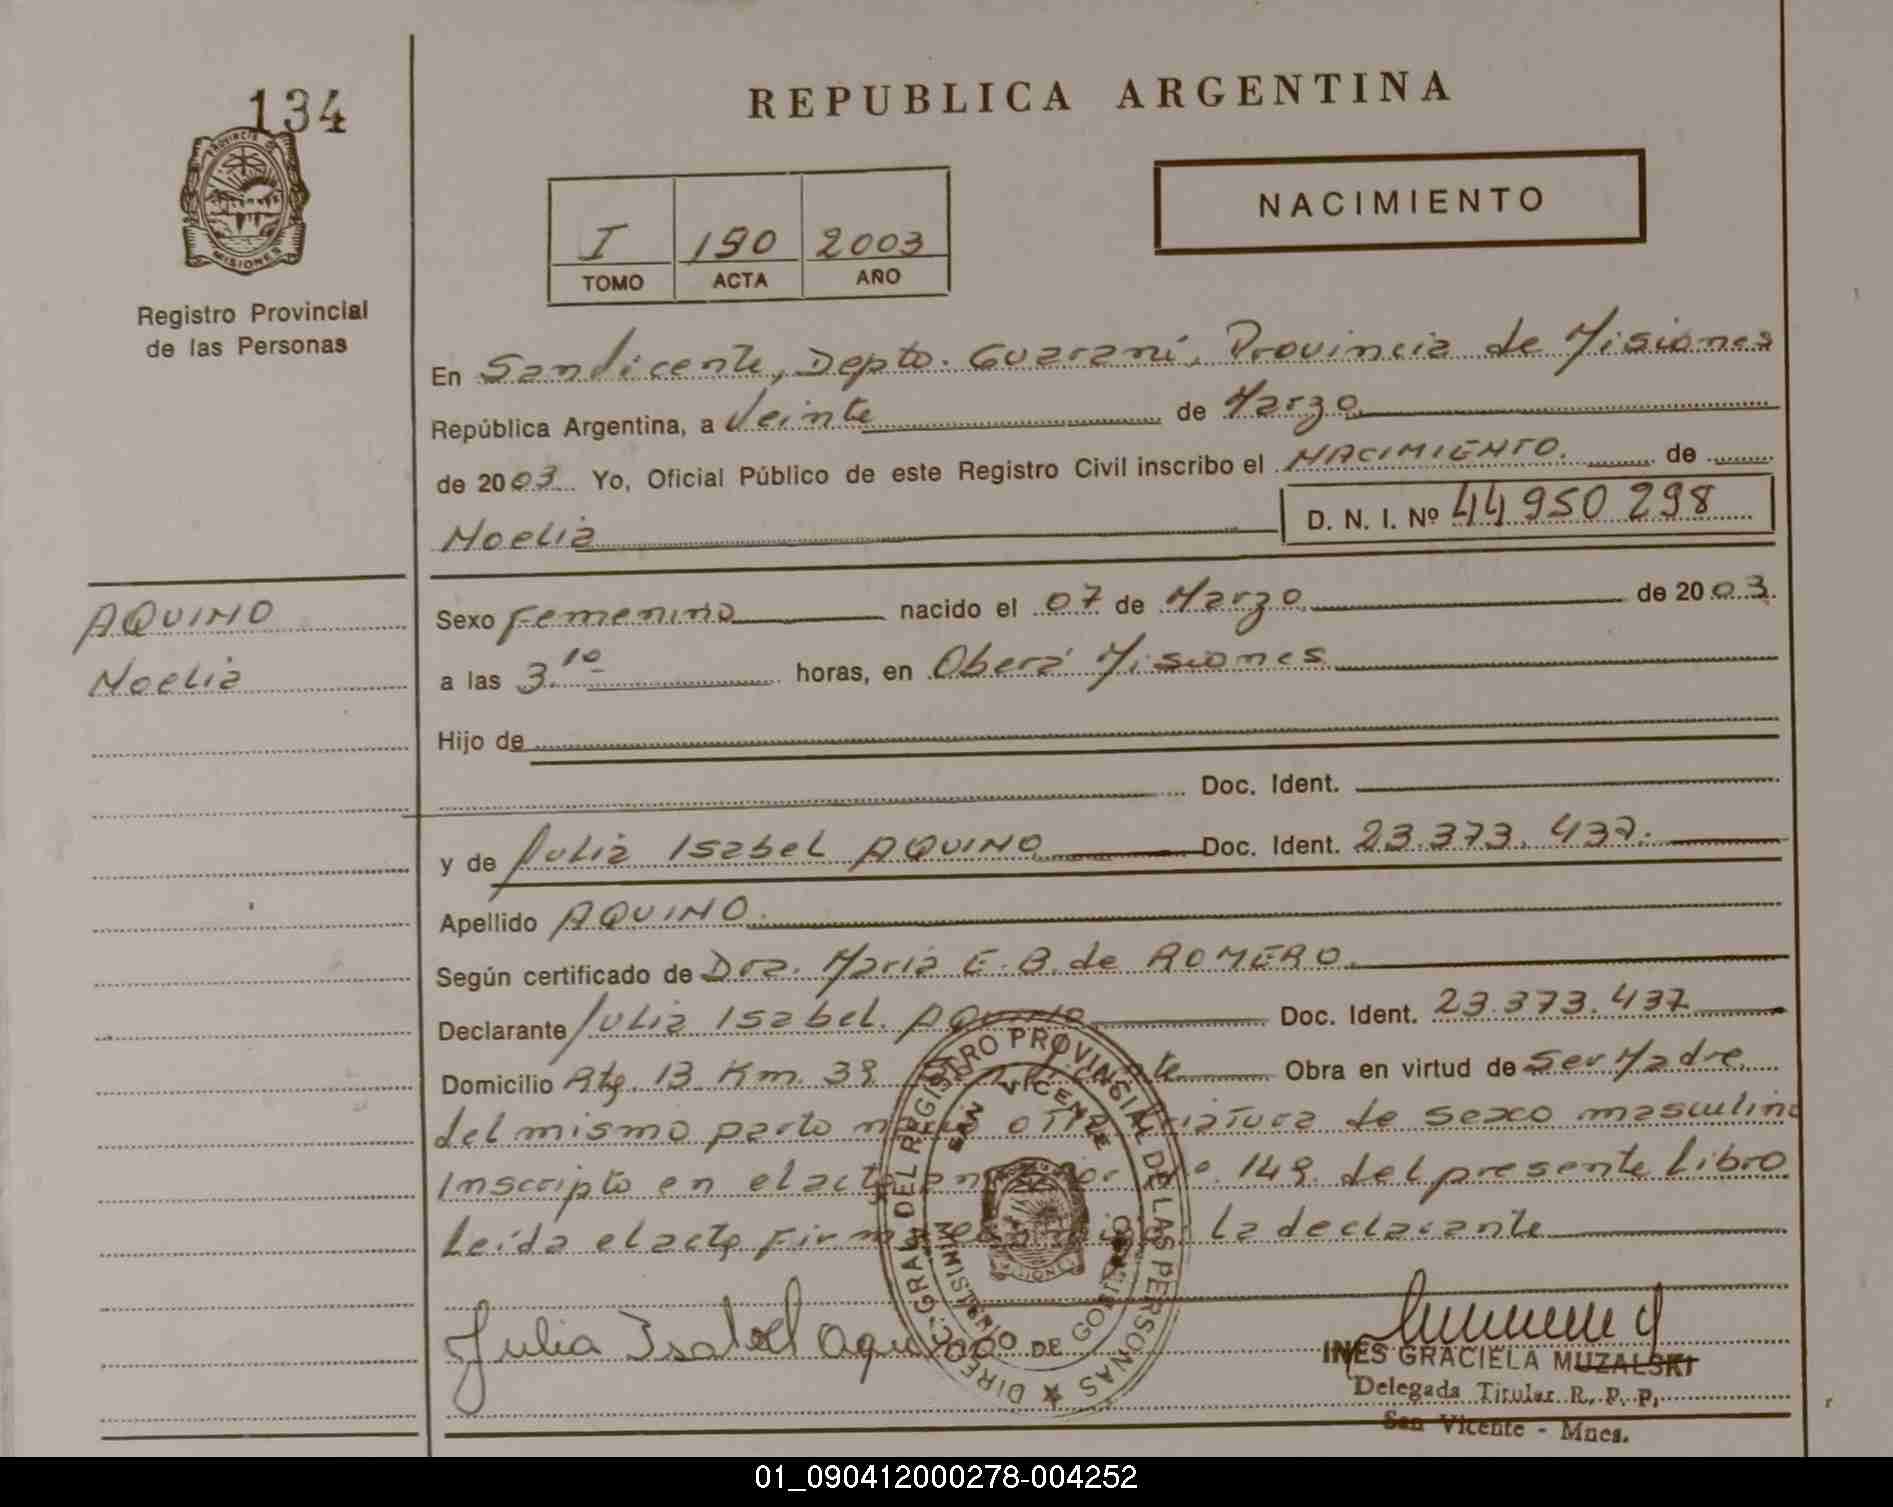 134
PROVINCIA DE
MISIONES
Registro Provincial
de las Personas
REPUBLICA ARGENTINA
NACIMIENTO
I 150 2003
TOMO ACTA AÑO
En San Vicente, Depto. Guaraní, Provincia de Misiones
República Argentina, a Veinte de Marzo
de 2003 Yo, Oficial Público de este Registro Civil inscribo el NACIMIENTO. de
Noelia D. N. I. Nº 44 950 298
AQUINO
Noelia
Sexo Femenino nacido el 07 de Marzo de 2003.
a las 3.10 horas, en Oberá Misiones
Hijo de
Doc. Ident.
y de Julia Isabel AQUINO Doc. Ident. 23.373.437.
Apellido AQUINO.
Según certificado de Dra. Maria E. B. de ROMERO.
Declarante Julia Isabel AQUINO Doc. Ident. 23.373.437
Domicilio Rta 13 Km. 39 San Vicente Obra en virtud de Ser Madre.
del mismo parto nació otra criatura de sexo masculino
Inscripto en el acta anterior Nº. 149 del presente Libro
Leída el acta, Firma la declarante
DIREC. GRAL. DEL REGISTRO PROVINCIAL DE LAS PERSONAS
SAN VICENTE
MINISTERIO DE GOBIERNO
MISIONES
Julia Isabel Aquino
INES GRACIELA MUZALSKI
Delegada Titular R. P. P.
San Vicente - Mnes.
01_090412000278-004252